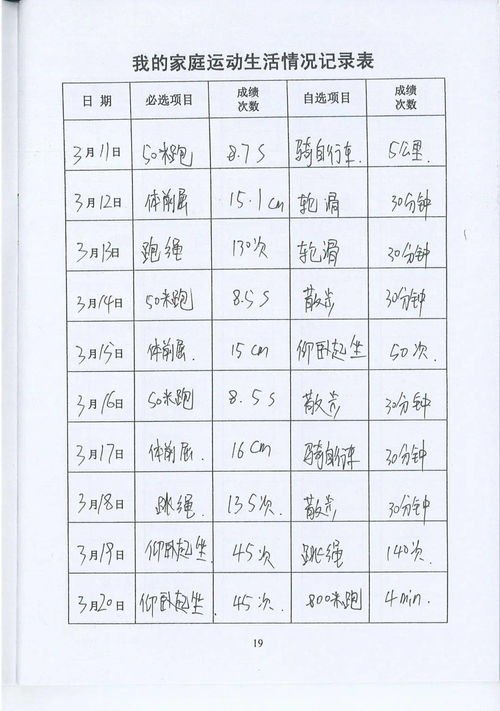 我的家庭运动生活情况记录表
日 期 必选项目 成绩次数 自选项目 成绩次数
3月11日 50米跑 8.7 S 骑自行车 5公里.
3月12日 体前屈 15.1 cm 轮滑 30分钟
3月13日 跑绳 130次 轮滑 30分钟
3月14日 50米跑 8.5 S 散步 30分钟
3月15日 体前屈. 15 cm 仰卧起坐 50次.
3月16日 50米跑 8.5 S 散步 30分钟
3月17日 体前屈. 16 cm 骑自行车 30分钟
3月18日 跳绳 135次. 散步 30分钟
3月19日 仰卧起坐 45次 跳绳 140次.
3月20日 仰卧起坐. 45次. 800米跑 4 min.
19